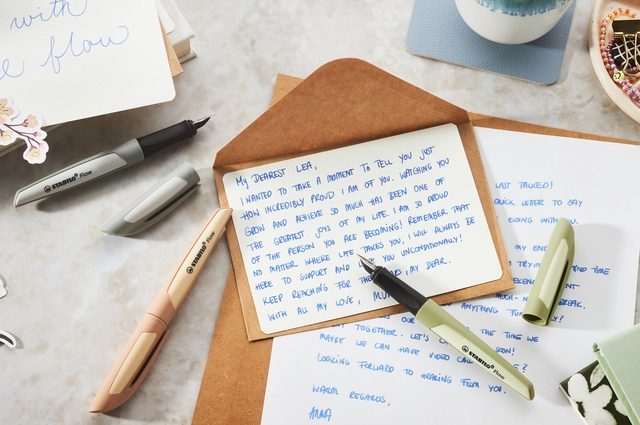 with
flow
STABILO flow
STABILO flow
My DEAREST LEA,
I WANTED TO TAKE A MOMENT TO TELL YOU JUST
HOW INCREDIBLY PROUD I AM OF YOU. WATCHING YOU
GROW AND ACHIEVE SO MUCH HAS BEEN ONE OF
THE GREATEST JOYS OF MY LIFE. I AM SO PROUD
OF THE PERSON YOU ARE BECOMING! REMEMBER THAT
NO MATTER WHERE LIFE TAKES YOU, I WILL ALWAYS BE
HERE TO SUPPORT AND LOVE YOU UNCONDITIONALLY!
KEEP REACHING FOR THE STARS, MY DEAR.
WITH ALL MY LOVE,
STABILO flow
LAST TALKED!
QUICK LETTER TO SAY
GOING WITH YOU.
MY
TIME
BREAK.
OUR THE TIME WE
TOGETHER. LET'S SOON!
MAYBE WE CAN HAVE VIDEO CALL ?
LOOKING FORWARD TO HEARING FROM YOU.
WARM REGARDS,
ANNA